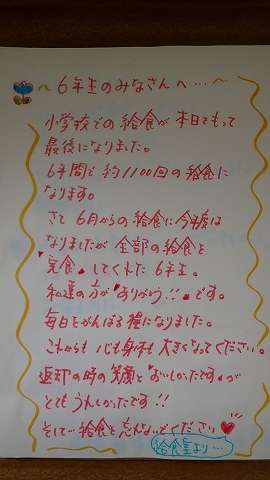 ～6年生のみなさんへ…～
小学校での給食が本日をもって
最後になりました。
6年間で約1100回の給食に
なります。
さて6月からの給食に今年度は
なりましたが全部の給食を
"完食"してくれた6年生。
私達の方が"ありがとう!!"です。
毎日をがんばる糧になりました。
これからも心も身体も大きくなってください。
返却の時の笑顔と"おいしかったです"が
とてもうれしかったです!!
そして…給食を忘れないでください
給食室より…